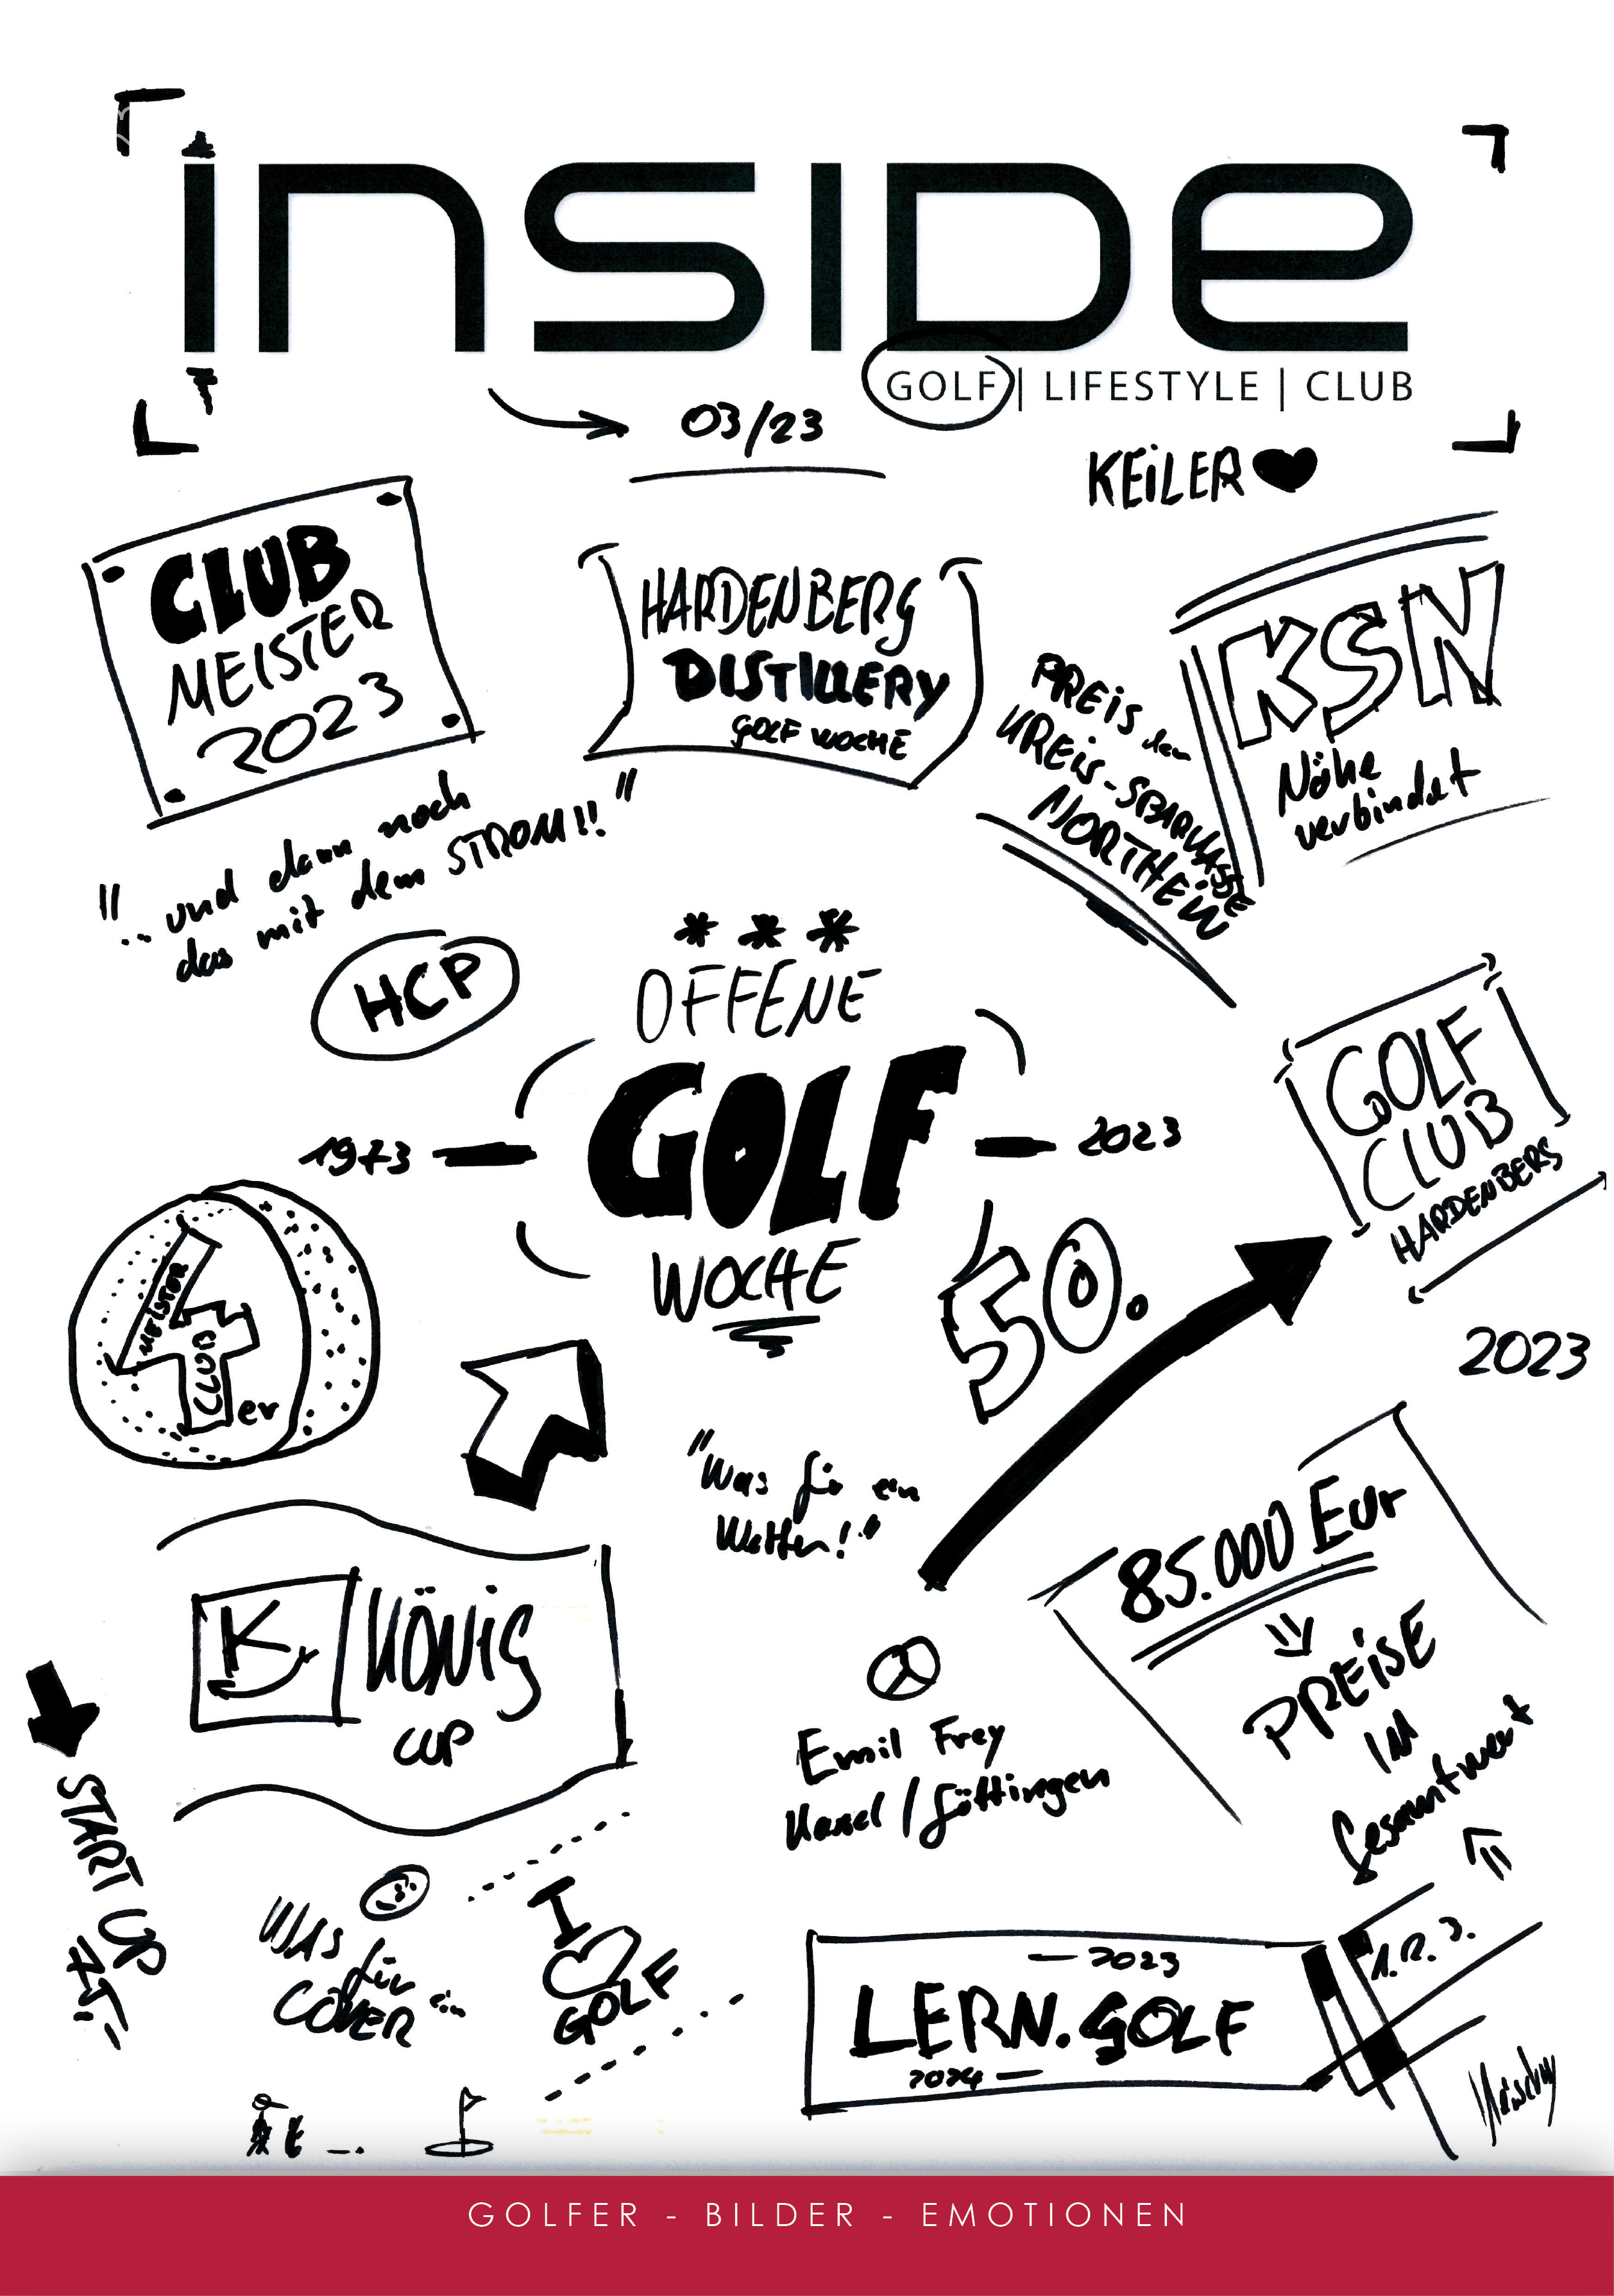 INSIDE
GOLF | LIFESTYLE | CLUB
03/23
KEiLER
CLUB
MEISTER
2023
HARDENBERG
DISTILLERY
GOLF WOCHE
PREiS der
KREiS-SPARKASSE
NORTHEiM
KSN
Nähe
verbindet
"... und dann noch
das mit dem STROM!!"
HCP
* * *
OFFENE
1973 — GOLF — 2023
WOCHE
50.
GOLF
CLUB
HARDENBERG
2023
4er
MEISTER
CLUB
"Was für ein
Wetter!"
85.000 Eur
PREiSE
IM
Gesamtwert
K
KÖNiG
CUP
START UP
Emil Frey
Kassel / Göttingen
WAS
für
ein
COVER
I
GOLF
— 2023
LERN.GOLF
2024 —
1. 2. 3.
GOLFER - BILDER - EMOTIONEN